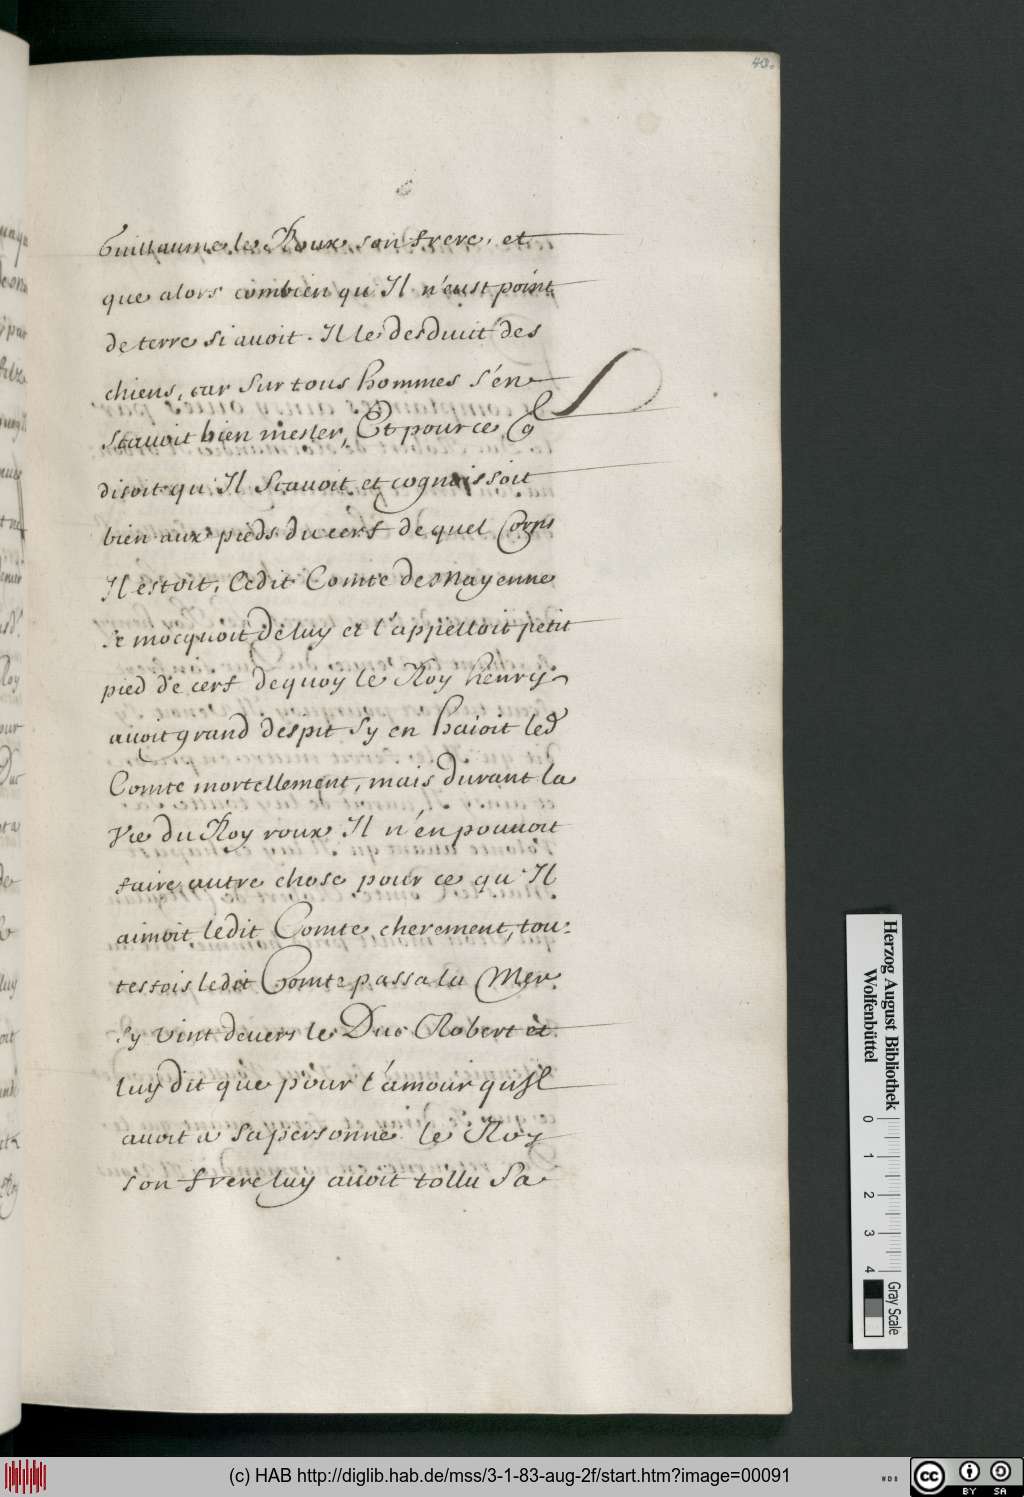 43.
Guillaume le Roux son frere, et
que alors combien qu Il n'eust point
de terre si auoit. Il le desduit des
chiens, car sur tous hommes s'en
scauoit bien mesler, Et pource, q̃
disoit qu'Il scauoit et cognoissoit
bien aux pieds du cerf de quel Corps
Il estoit, Ledit Comte de Mayenne
se mocquoit de luy et l'appelloit petit
pied de cerf dequoy le Roy henry
auoit grand despit sy en haioit led
Comte mortellement, mais durant la
vie du Roy roux Il n'en pouuoit
faire autre chose pour ce qu'Il
aimoit ledit Comte cherement, tou-
tesfois ledit Comte passa la Mer.
sy vint deuers le Duc Robert et
luy dit que pour l'amour qu'Il
auoit a sa personne le Roy
son frere luy auoit tollu sa
Herzog August Bibliothek
Wolfenbüttel
0 1 2 3 4
Gray Scale
(c) HAB http://diglib.hab.de/mss/3-1-83-aug-2f/start.htm?image=00091
WDB
cc BY SA